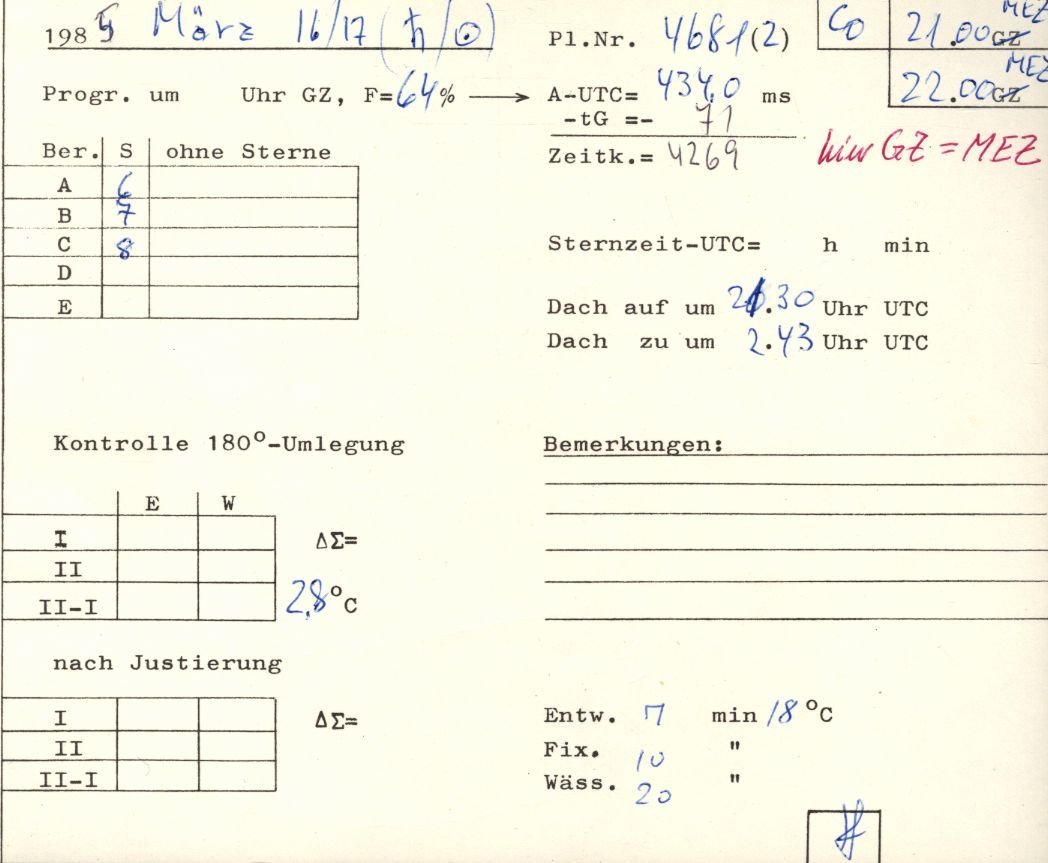 1985 März 16/17 (♄/☉) Pl.Nr. 4681(2) Co 21.00 GZ MEZ
22.00 GZ MEZ
Progr. um Uhr GZ, F=64% → A-UTC= 434,0 ms
-tG =- 71
Zeitk.= 4269 hier GZ = MEZ
Ber. S ohne Sterne
A 6
B 7
C 8
D
E
Sternzeit-UTC= h min
Dach auf um 20.30 Uhr UTC
Dach zu um 2.43 Uhr UTC
Kontrolle 180°-Umlegung
E W
I ΔΣ=
II
II-I 2,8°C
Bemerkungen:
nach Justierung
I ΔΣ=
II
II-I
Entw. 7 min 18 °C
Fix. 10 "
Wäss. 20 "